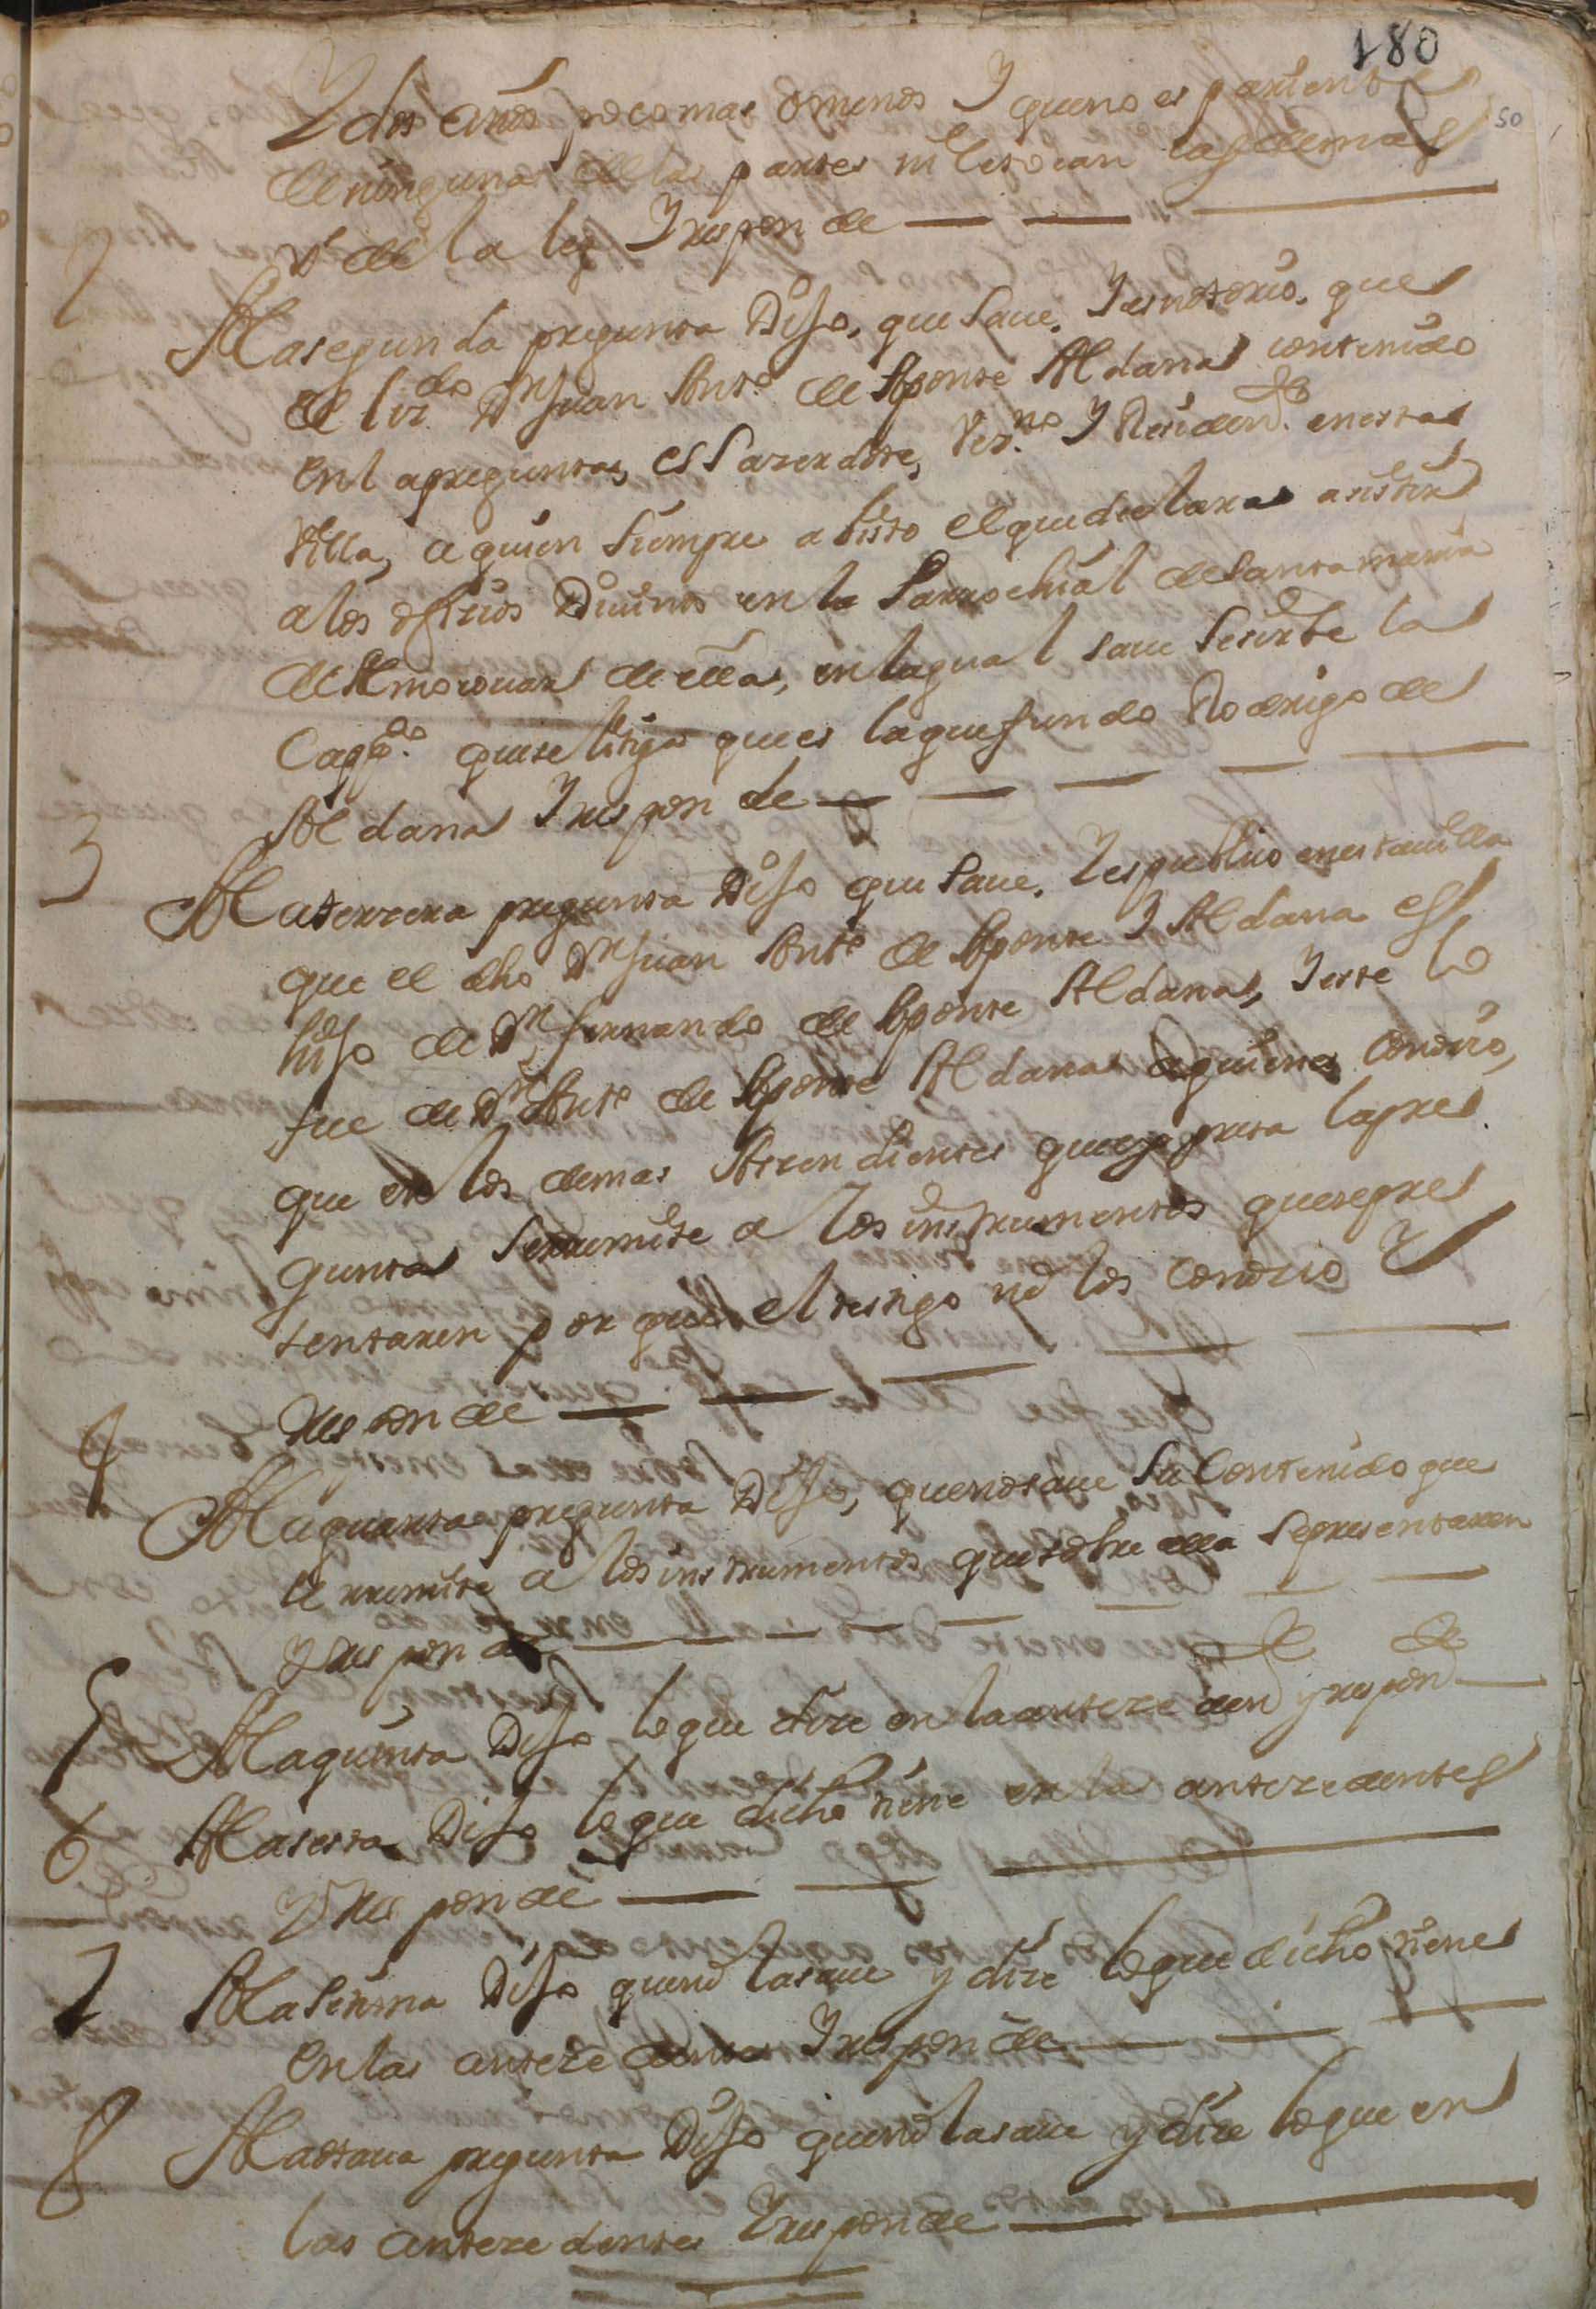 180
50
Y dos años poco mas o menos Y que no es pariente
de ninguna de las partes ni le tocan las demas
de la ley Y responde
2
A la segunda pregunta Dijo, que saue, Y es notorio, que
el liz.do Dn Juan Anto de Aponte Aldana contenido
en la pregunta, es sazerdote, vez.no Y Residen.te en esta
villa, a quien siempre a visto el que declara asistir
a los ofizios Diuinos en la Parrochial de santa maria
de Almocouar de ella, en la qual saue se sirbe la
Capp.a que se litiga que es la que fundo Rodrigo de
Aldana Y responde
3
A la terzera pregunta Dijo que saue, Y es publico en esta uilla
que el dho Dn Juan Anto de Aponte Y Aldana es
hijo de Dn fernando de Aponte Aldana, Y este lo
fue de Dn Anto de Aponte Aldana a quienes conozio,
que en los demas Aszendientes que expresa la pre
gunta se rremite a los instrumentos que se pre
sentaren por que el testigo no los conozio Y
responde
4
A la quarta pregunta Dijo, que no saue su contenido que
se rremite a los instrumentos que sobre ella se presentaren
Y responde
5
A la quinta Dijo lo que dize en la anteze den.te y respon.de
6
A la sesta Dijo lo que dicho tiene en la antezedentes
Y responde
7
A la setima Dijo que no la saue y dize lo que dicho tiene
en las antezedentes Y responde
8
A la otaua pregunta Dijo que no la saue y dize lo que en
las antezedentes Y responde